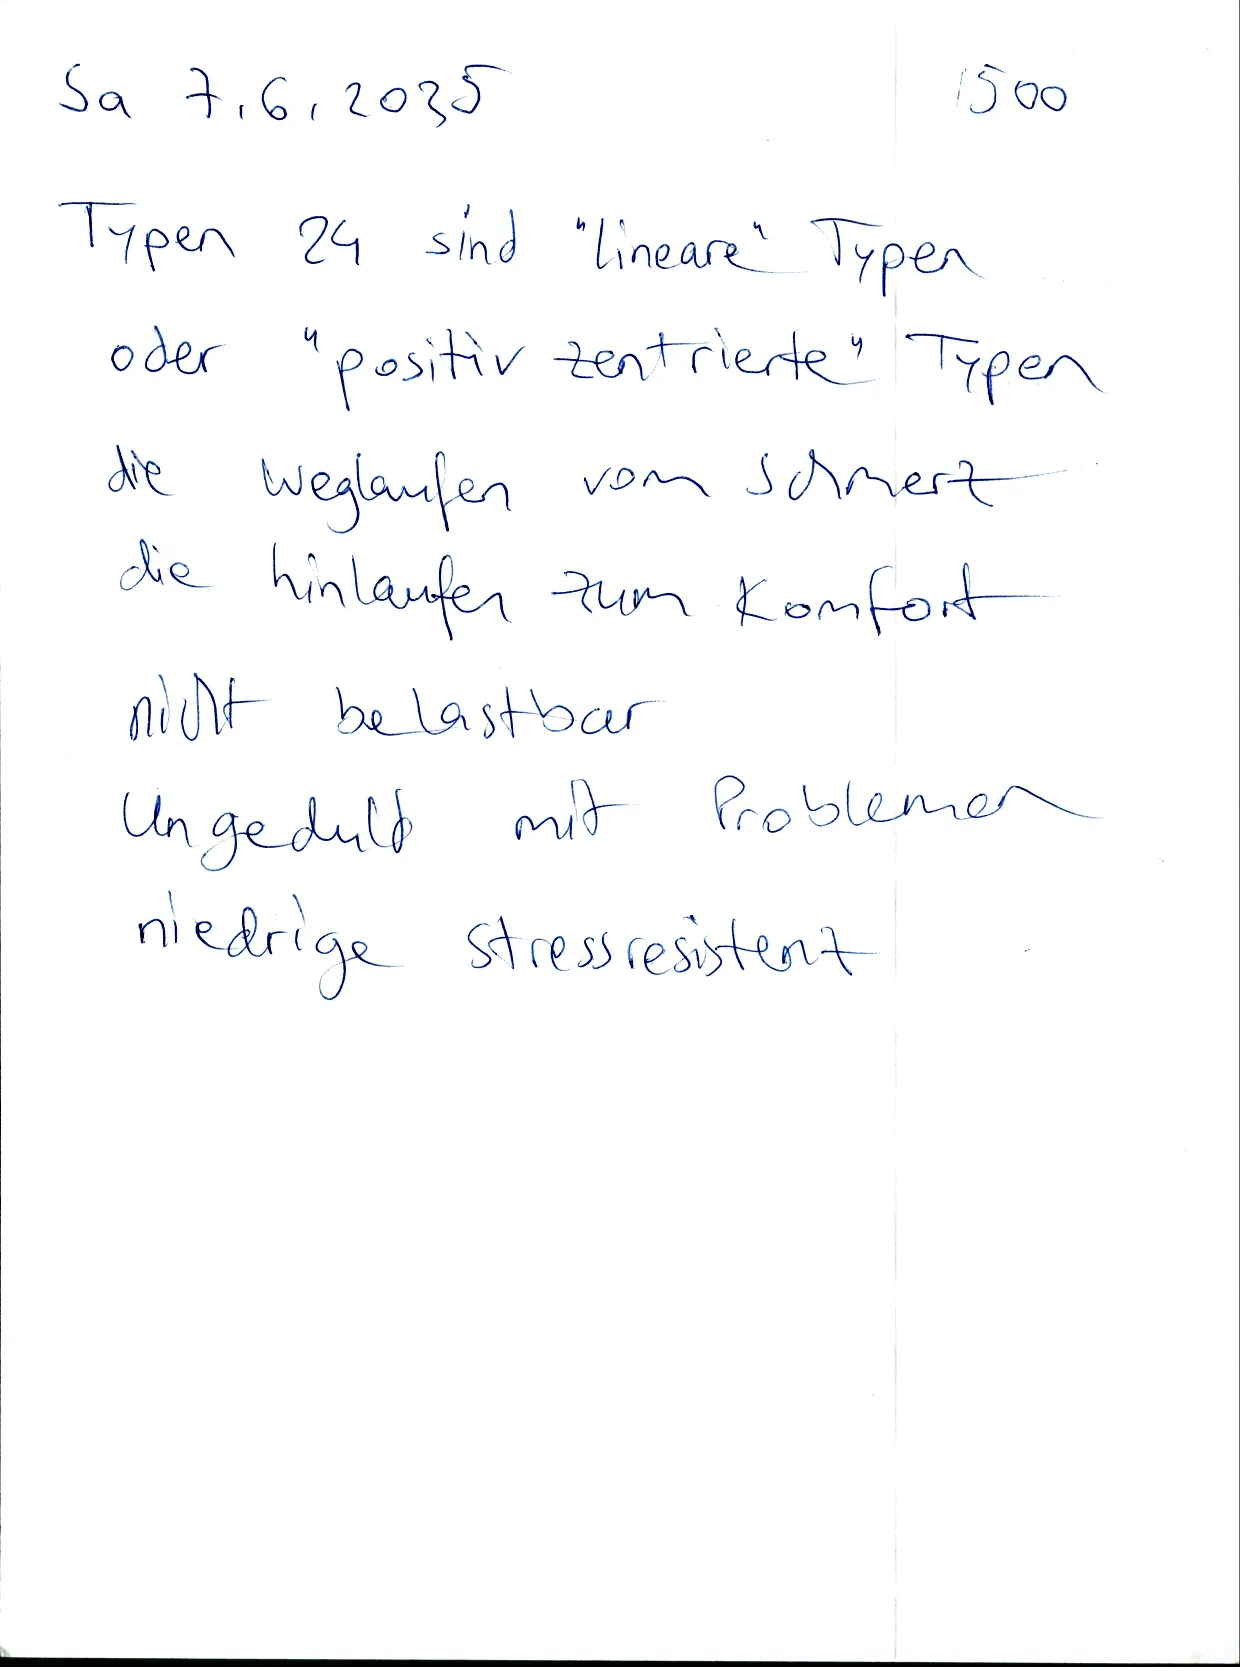 Sa 7.6.2025 1500
Typen 24 sind "lineare" Typen
oder "positiv zentrierte" Typen
die weglaufen vom Schmerz
die hinlaufen zum Komfort
nicht belastbar
Ungeduld mit Problemen
niedrige stressresistenz